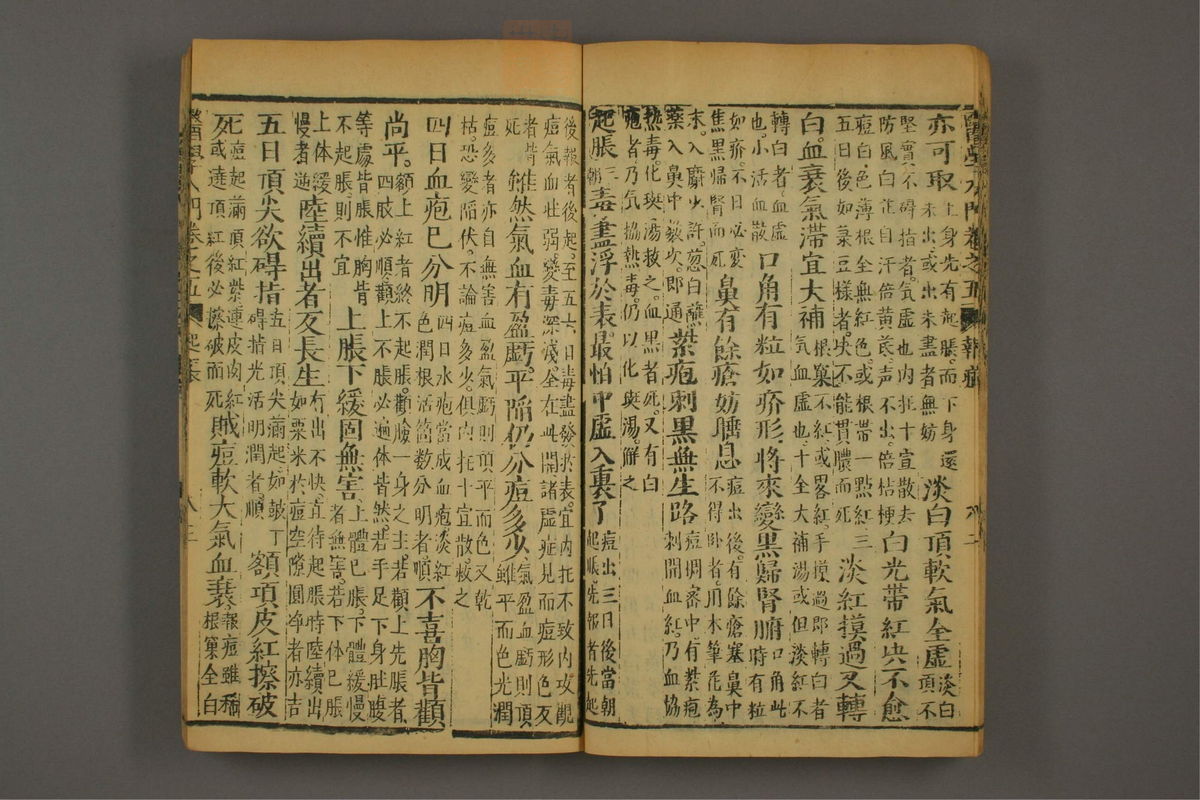 亦可取上身先有起脹而下身還未出或出未盡者無妨淡白頂軟氣全虛淡白頂不
堅實不碍指者氣虛也內托十宣散去防風白芷自汗倍黃芪声不出倍桔梗白光帶紅決不愈
痘白色薄根全無紅色或根帶一點紅三五日後如菉豆樣者決不能貫膿而死淡紅摸過又轉
白血衰氣滯宜大補根窠不紅或畧紅手摸過即轉白者氣血虛也十全大補湯或但淡紅不
轉白者血虛也小活血散口角有粒如疥形將來變黑歸腎腑口角此時有粒
如疥不日必變焦黑歸腎而死鼻有餘瘡妨䐉息痘出後有餘瘡塞鼻中不得卧者用木筆花為
末入麝少許葱白蘸藥入鼻中數次即通紫疱刺黑無生路痘稠密中有紫疱刺開血紅乃血協
熱毒化斑湯救之血黑者死又有白疱者乃氣協熱毒仍以化斑湯解之
起脹三朝毒盡浮於表最怕中虛入裏了痘出三日後當朝起脹先報者先起
後報者後起至五六日毒盡發於表宜內托不致內攻觀痘氣血壯弱變毒深淺全在此開諸虛症見而痘形色反
死者皆雖然氣血有盈虧平陷仍分痘多少氣盈血虧則頂雖平而色光潤
痘多者亦自無害血盈氣虧則頂平而色又乾枯恐變陷伏不論痘多少俱內托十宣散救之
四日血疱已分明四日水疱當成血疱淡紅色潤根活箇數分明者順不喜胸皆顴
尚平額上紅者終不起脹顴腹一身之主若顴上先脹者四肢必順顴上不脹必遍体皆然若手足下身肚腹
等處皆脹惟胸背不起脹則不宜上脹下緩固無害上體已脹下體緩慢者無害若下体已脹
上体緩慢者逆陸續出者反長生有出不快直待起脹時陸續出如粟米於痘空隙圓凈者亦吉
五日頂尖欲碍指五日頂尖滿起如皷丁碍指光活明潤者順額項皮紅擦破
死痘起滿頂紅紫連皮肉紅死或遶項紅後必擦破而死賊痘軟大氣血衰報痘雖稱根窠全白